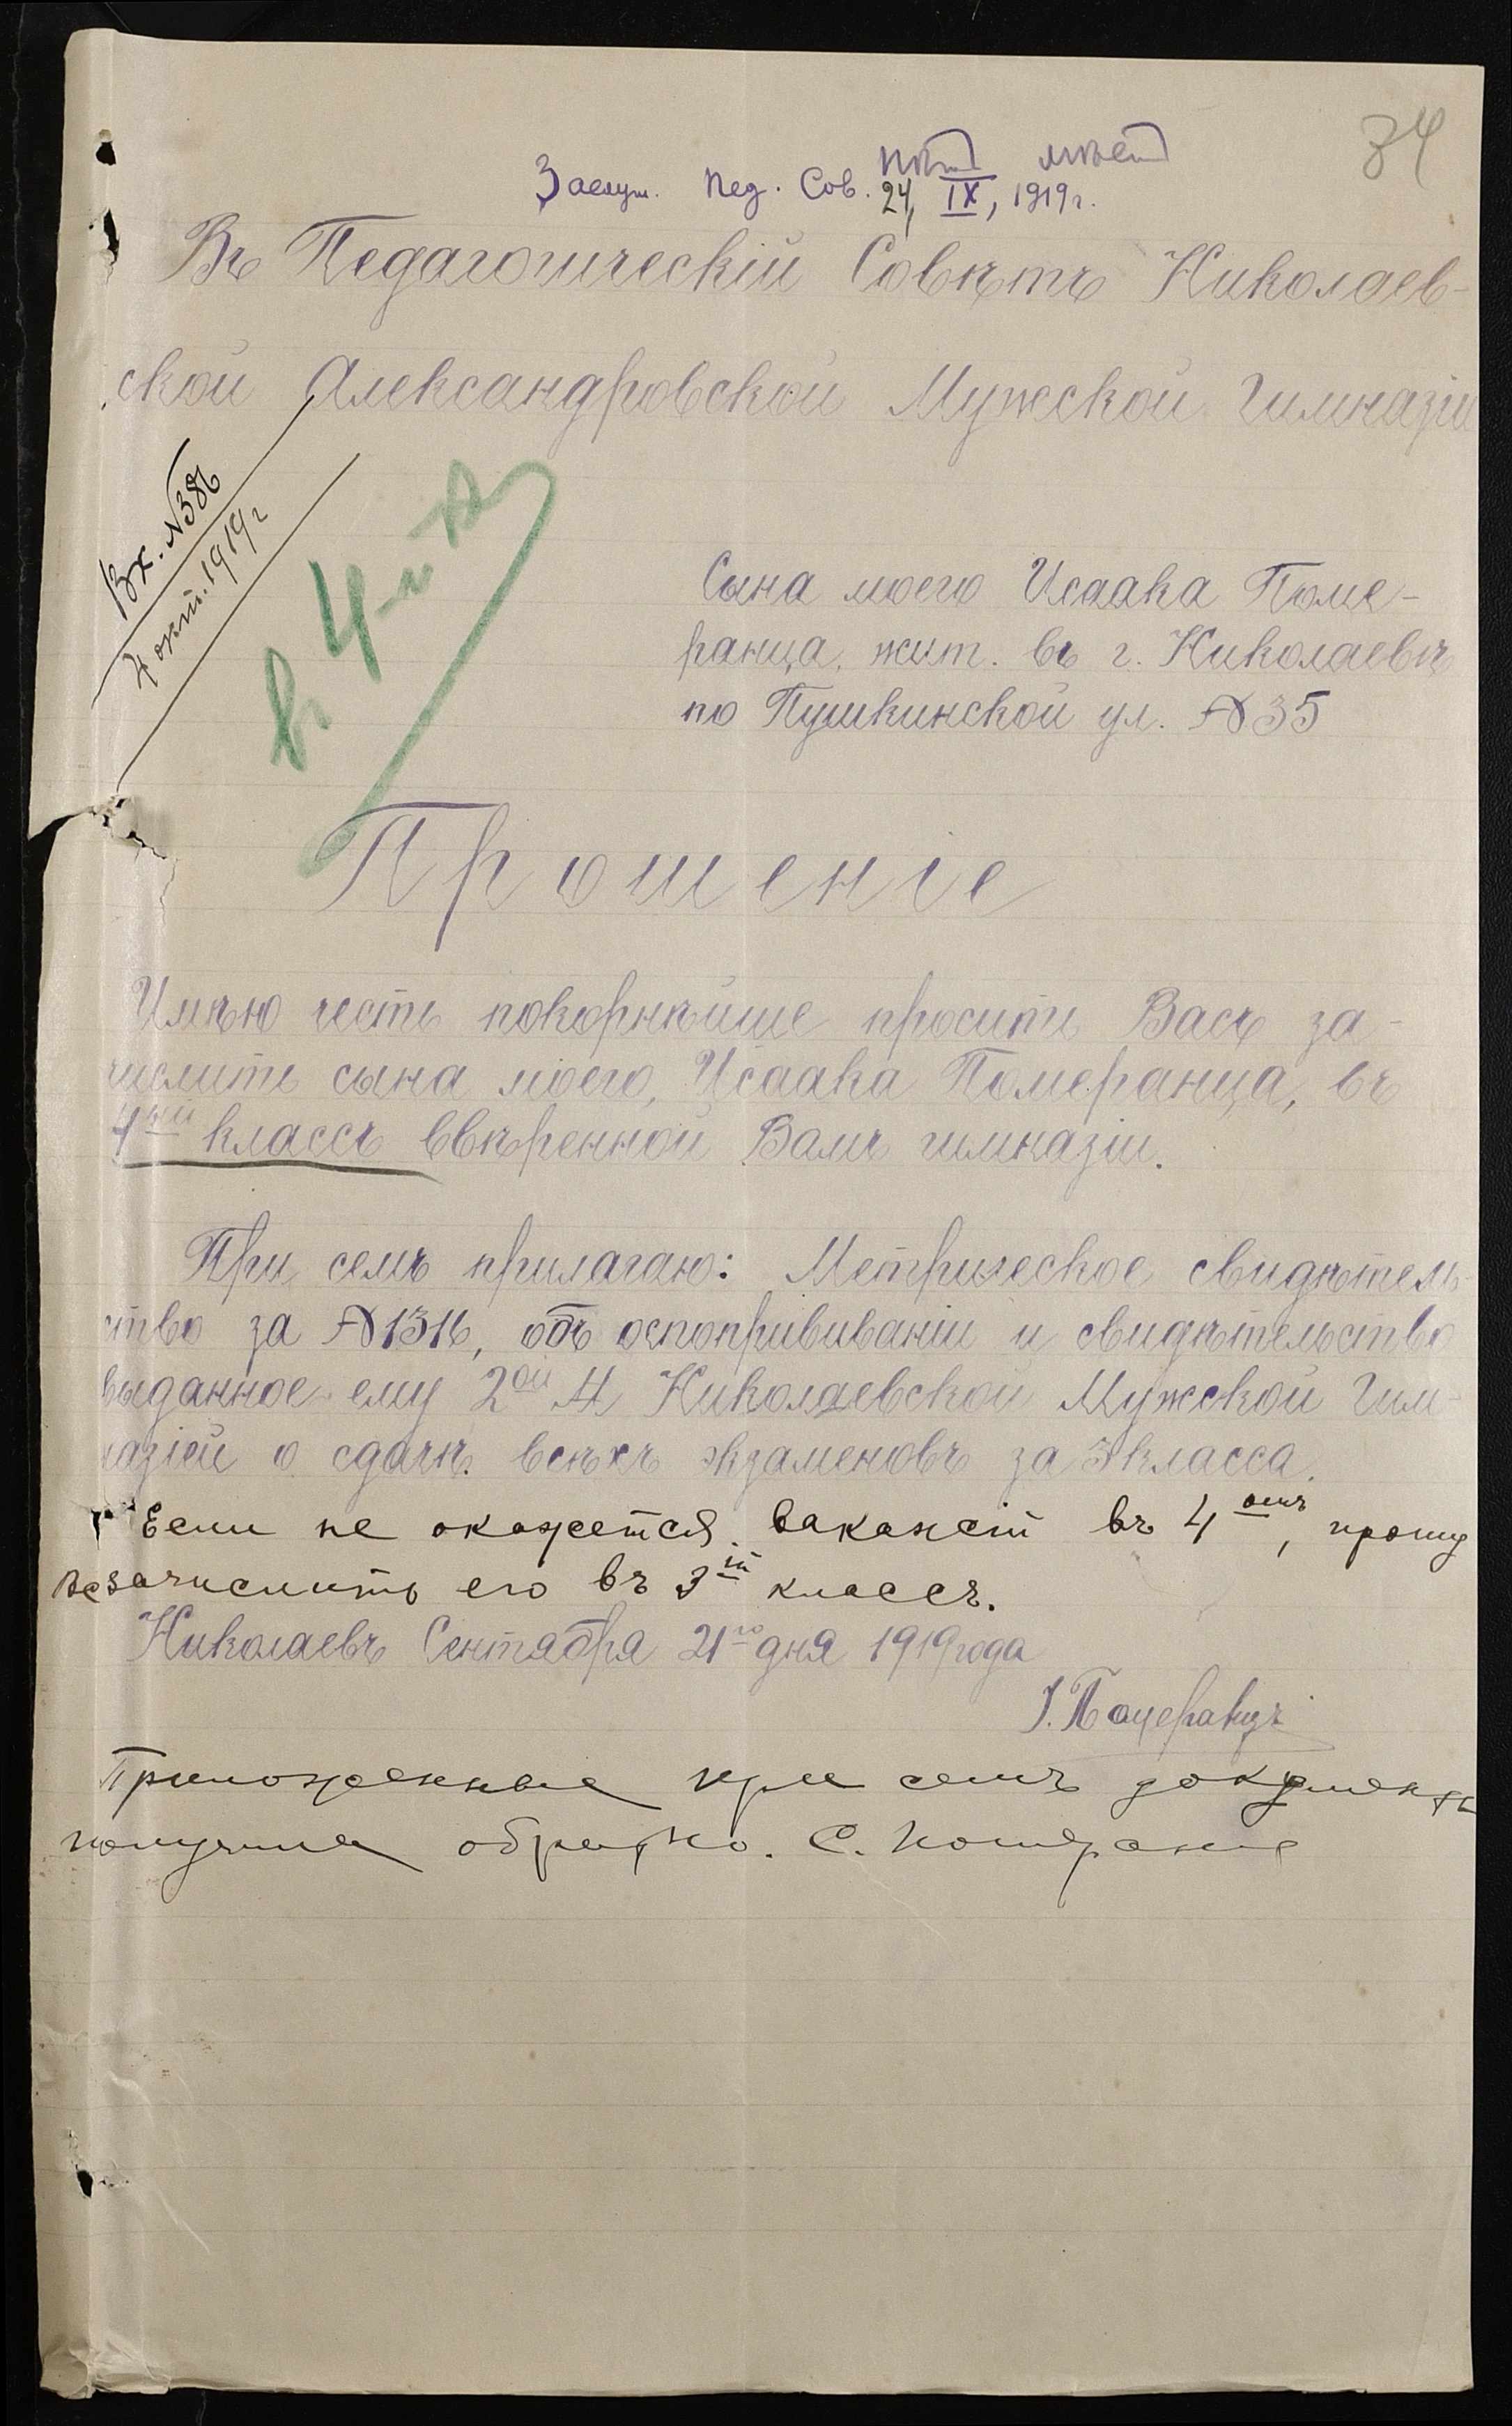 34
нѣт мѣст
Заслуш. Пед. Сов. 24, IX, 1919 г.
Въ Педагогическій Совѣтъ Николаев-
ской Александровской Мужской Гимназіи
Вх. №386
4 окт. 1919 г
в 4-й
Сына моего Исаака Поме-
ранца, жит. въ г. Николаевѣ
по Пушкинской ул. №35
Прошеніе
Имѣю честь покорнѣйше просить Васъ за-
числить сына моего, Исаака Померанца, въ
4ый классъ ввѣренной Вамъ гимназіи.
При семъ прилагаю: Метрическое свидѣтель-
ство за №1316, объ оспопрививаніи и свидѣтельство
выданное ему 2ой Николаевской Мужской Гим-
назіей о сдачѣ всѣхъ экзаменовъ за 3 класса.
Если не окажется вакансій въ 4омъ, прошу
зачислить его въ 3ій классъ.
Николаевъ Сентября 21го дня 1919 года
І. Померанцъ
Приложенные при семъ документы
получила обратно. С. Померанц